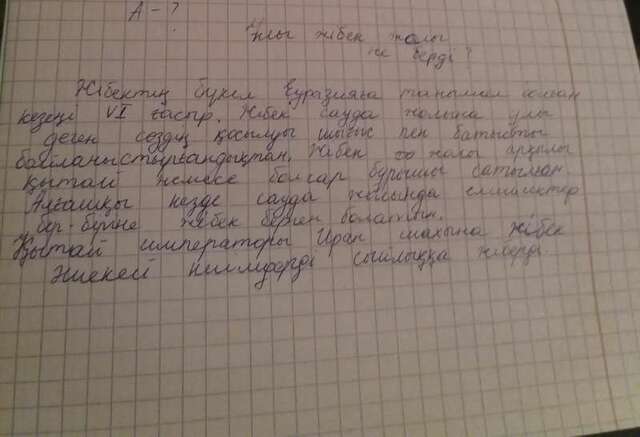 А - ?
Ұлы жібек жолы
не берді?
Жібектің бүкіл Еуразияға танымал болған
кезеңі VI ғасыр. Жібек сауда жолына ұлы
деген сөздің қосылуы шығыс пен батысты
байланыстырғандықтан. Жібек жолы арқылы
Қытай немесе болгар бұрышы
Алғашқы кезде сауда жолында
бір-біріне жібек берген болатын.
Қытай императоры Иран шахына жібек
киімдерді сыйлыққа жіберді.